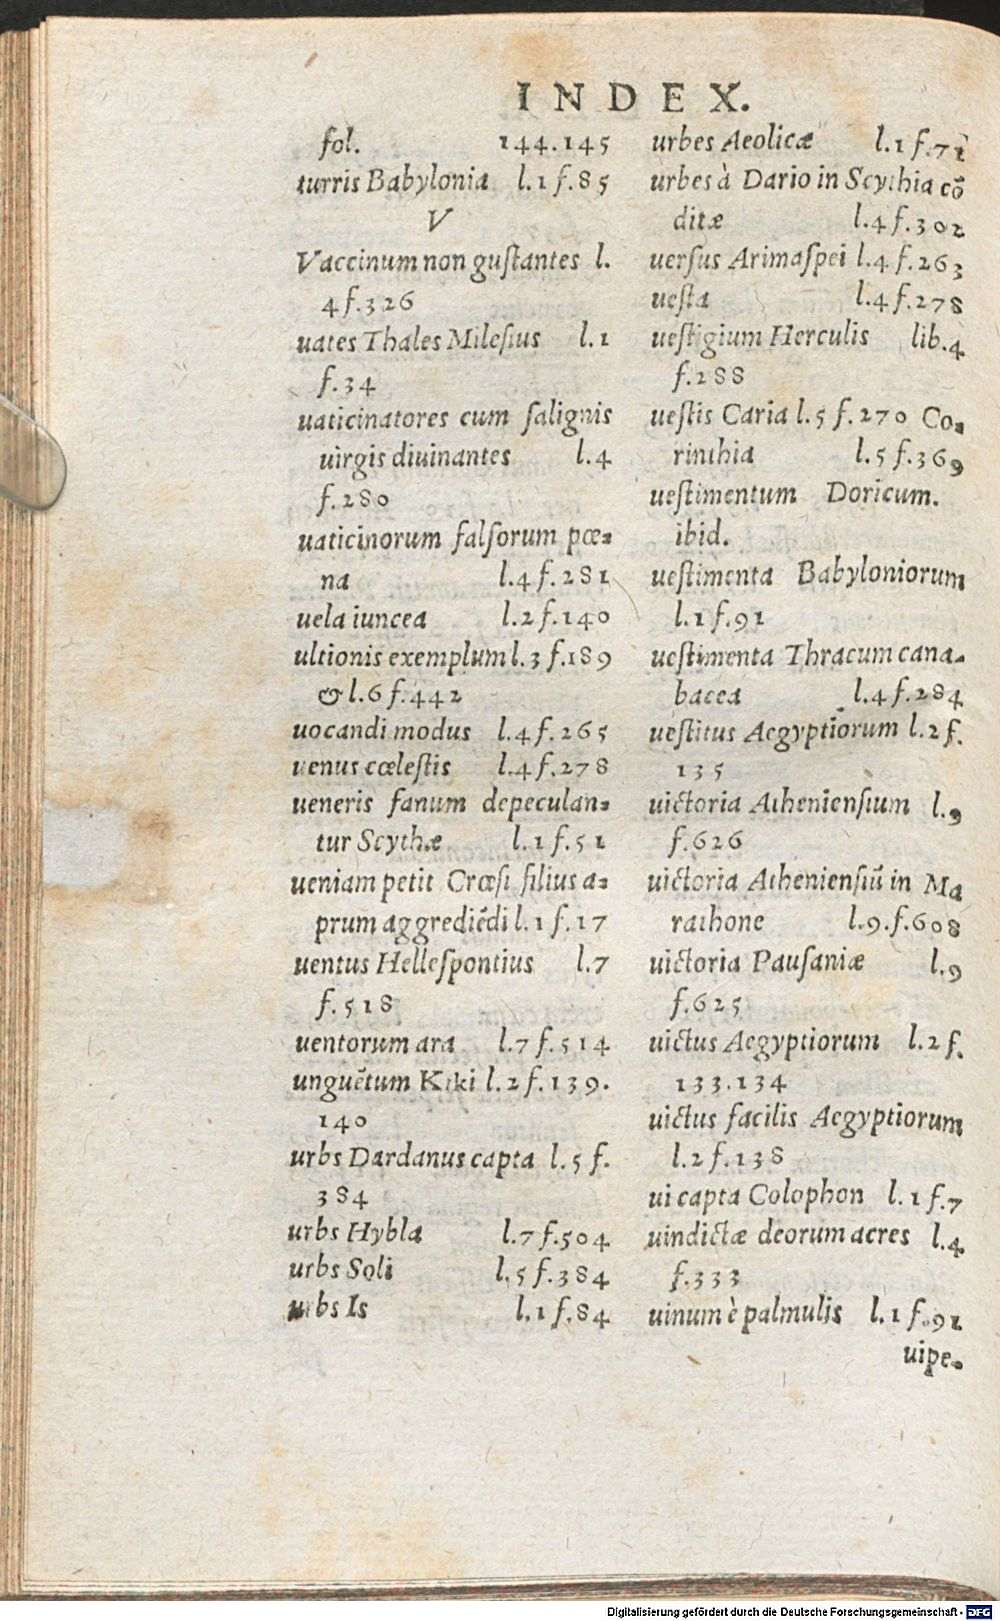 INDEX.
fol. 144.145
turris Babylonia l.1 f.85
V
Vaccinum non gustantes l.
4 f.326
uates Thales Milesius l.1
f.34
uaticinatores cum salignis
uirgis diuinantes l.4
f.280
uaticinorum falsorum pœ-
na l.4 f.281
uela iuncea l.2 f.140
ultionis exemplum l.3 f.189
& l.6 f.442
uocandi modus l.4 f.265
uenus cœlestis l.4 f.278
ueneris fanum depeculan-
tur Scythæ l.1 f.51
ueniam petit Crœsi filius a-
prum aggrediẽdi l.1 f.17
uentus Hellespontius l.7
f.518
uentorum ara l.7 f.514
unguẽtum Kiki l.2 f.139.
140
urbs Dardanus capta l.5 f.
384
urbs Hybla l.7 f.504
urbs Soli l.5 f.384
urbs Is l.1 f.84
urbes Aeolicæ l.1 f.71
urbes à Dario in Scythia cõ
ditæ l.4 f.302
uersus Arimaspei l.4 f.263
uesta l.4 f.278
uestigium Herculis lib.4
f.288
uestis Caria l.5 f.270 Co-
rinthia l.5 f.369
uestimentum Doricum.
ibid.
uestimenta Babyloniorum
l.1 f.91
uestimenta Thracum cana-
bacea l.4 f.284
uestitus Aegyptiorum l.2 f.
135
uictoria Atheniensium l.9
f.626
uictoria Atheniensiũ in Ma
rathone l.9.f.608
uictoria Pausaniæ l.9
f.625
uictus Aegyptiorum l.2 f.
133.134
uictus facilis Aegyptiorum
l.2 f.138
ui capta Colophon l.1 f.7
uindictæ deorum acres l.4
f.333
uinum è palmulis l.1 f.91
uipe-
Digitalisierung gefördert durch die Deutsche Forschungsgemeinschaft - DFG